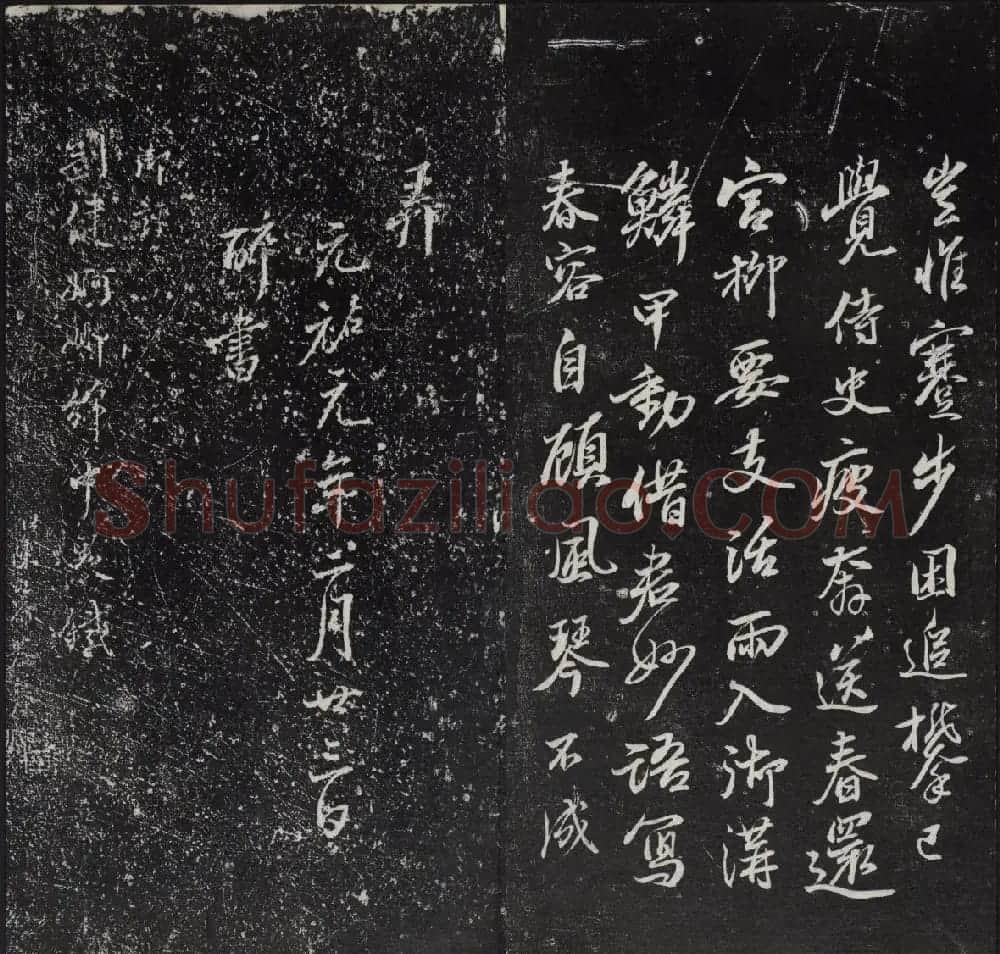 豈惟蹇步困追攀已
覺侍史疲奔送春還
宮柳要支活雨入御溝
鱗甲動借君妙語寫
春容自顧風琴不成
弄
元祐元年二月廿三日
書
Shufaziliao.COM